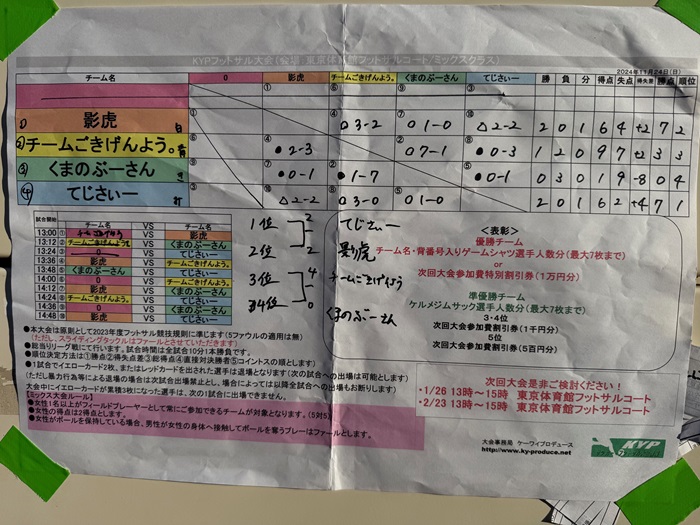 KYPフットサル大会(会場 東京体育館フットサルコート/ミックスクラス)
2024年11月24日(日)
チーム名 0 影虎 チームごきげんよう。 くまのぶーさん てじさぃー 勝 負 分 得点 失点 得失差 勝点 順位
① ⑥ ⑨ ③
1) 影虎 ① ④ 3-2 ⑦ 1-0 ⑩ △2-2 2 0 1 6 4 +2 7 2
2) チームごきげんよう。 ④ ●2-3 ② 7-1 ⑧ ●0-3 1 2 0 9 7 +2 3 3
3) くまのぶーさん ⑦ ●0-1 ② ●1-7 ⑤ ●0-1 0 3 0 1 9 -8 0 4
4) てじさぃー ③ ⑩ △2-2 3-0 ⑤ 1-0 2 0 1 6 2 +4 7 1
試合開始 チーム名 VS チーム名
13:00 ① VS 影虎
13:12 ② チームごきげんよう。 VS くまのぶーさん
13:24 ③ VS てじさぃー
13:36 ④ 影虎 VS チームごきげんよう。
13:48 ⑤ くまのぶーさん VS てじさぃー
14:00 ⑥ VS チームごきげんよう。
14:12 ⑦ 影虎 VS くまのぶーさん
14:24 ⑧ チームごきげんよう。 VS てじさぃー
14:36 ⑨ VS くまのぶーさん
14:48 ⑩ 影虎 VS てじさぃー
1位 2 てじさぃー
2位 2 影虎
3位 4 チームごきげんよう
4位 0 くまのぶーさん
<表彰>
優勝チーム
チーム名・背番号入りゲームシャツ選手人数分(最大7枚まで)
or
次回大会参加費特別割引券(1万円分)
準優勝チーム
ケルメジムサック選手人数分(最大7枚まで)
3・4位
次回大会参加費割引券(1千円分)
5位
次回大会参加費割引券(5百円分)
●本大会は原則として2023年度フットサル競技規則に準じます(5ファウルの適用は無)
(ただし、スライディングタックルはファールとさせていただきます)
●総当りリーグ戦にて行います。試合時間は全試合10分1本勝負です。
●順位決定方法は①勝点②得失点差③総得点④直接対決勝者⑤コイントスの順とします)
●1試合でイエローカード2枚、またはレッドカードを出された選手は退場となります(次の試合への出場は可能とします)
(ただし暴力行為等による退場の場合は次試合出場禁止とし、場合によっては以降全試合への出場もお断りします)
大会中にイエローカードが累積3枚になった選手は、次の1試合に出場できません。
【ミックス大会ルール】
●女性1名以上がフィールドプレーヤーとして常にご参加できるチームが対象となります。(5対5)
●女性の得点は2得点とします。
●女性がボールを保持している場合、男性が女性の身体へ接触してボールを奪うプレーはファールとします。
次回大会是非ご検討ください!
・1/26 13時~15時 東京体育館フットサルコート
・2/23 13時~15時 東京体育館フットサルコート
大会事務局 ケーワイプロデュース
http://www.ky-produce.net
KYP